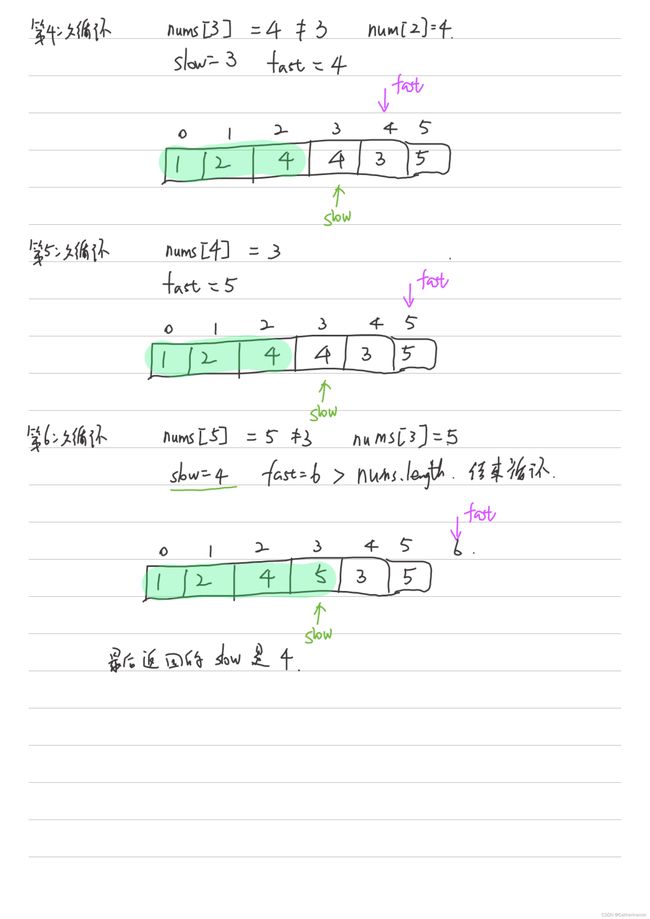 第4次循环 nums[3] = 4 ≠ 3 num[2]=4.
slow=3 fast=4
fast
0 1 2 3 4 5
1 2 4 4 3 5
slow
第5次循环 nums[4] = 3
fast=5
fast
0 1 2 3 4 5
1 2 4 4 3 5
slow
第6次循环 nums[5] = 5 ≠3 nums[3]=5
slow=4 fast=6 > nums.length. 结束循环.
fast
0 1 2 3 4 5 6.
1 2 4 5 3 5
slow
最后返回的 slow 是 4.